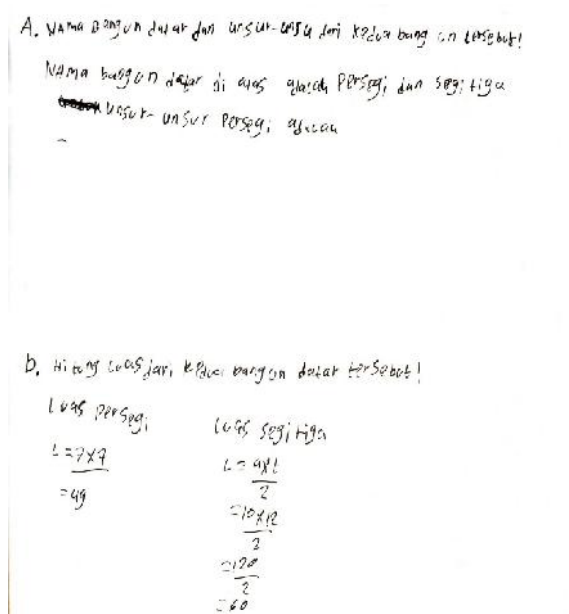 A. Nama Bangun datar dan unsur-unsu dari kedua bang un tersebut!
Nama bangun datar di atas adalah Persegi dan segitiga
unsur-unsur Persegi adalah
-
b. Hitung luas dari kedua bangun datar tersebut!
Luas persegi
L = 7x7
= 49
Luas segitiga
L = axt
2
= 10x12
2
= 120
2
= 60